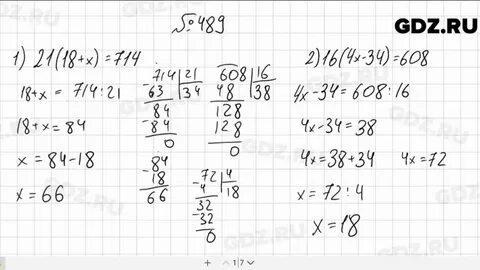 №489
GDZ.RU
1) 21(18+x)=714
18+x = 714:21
18+x = 84
x = 84-18
x = 66
714 | 21
63 | 34
84
-84
0
-84
18
66
608 | 16
48 | 38
128
128
0
-72 | 4
4 | 18
32
-32
0
2) 16(4x-34)=608
4x-34=608:16
4x-34=38
4x=38+34 4x=72
x=72:4
x=18
+ 1|7